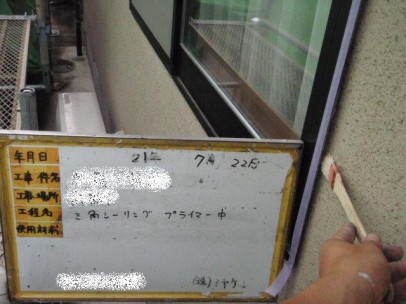 年月日 21年 7月 22日
工事件名
工事場所
工程名 三角シーリング プライマー中
使用材料
(株)ミヤケン